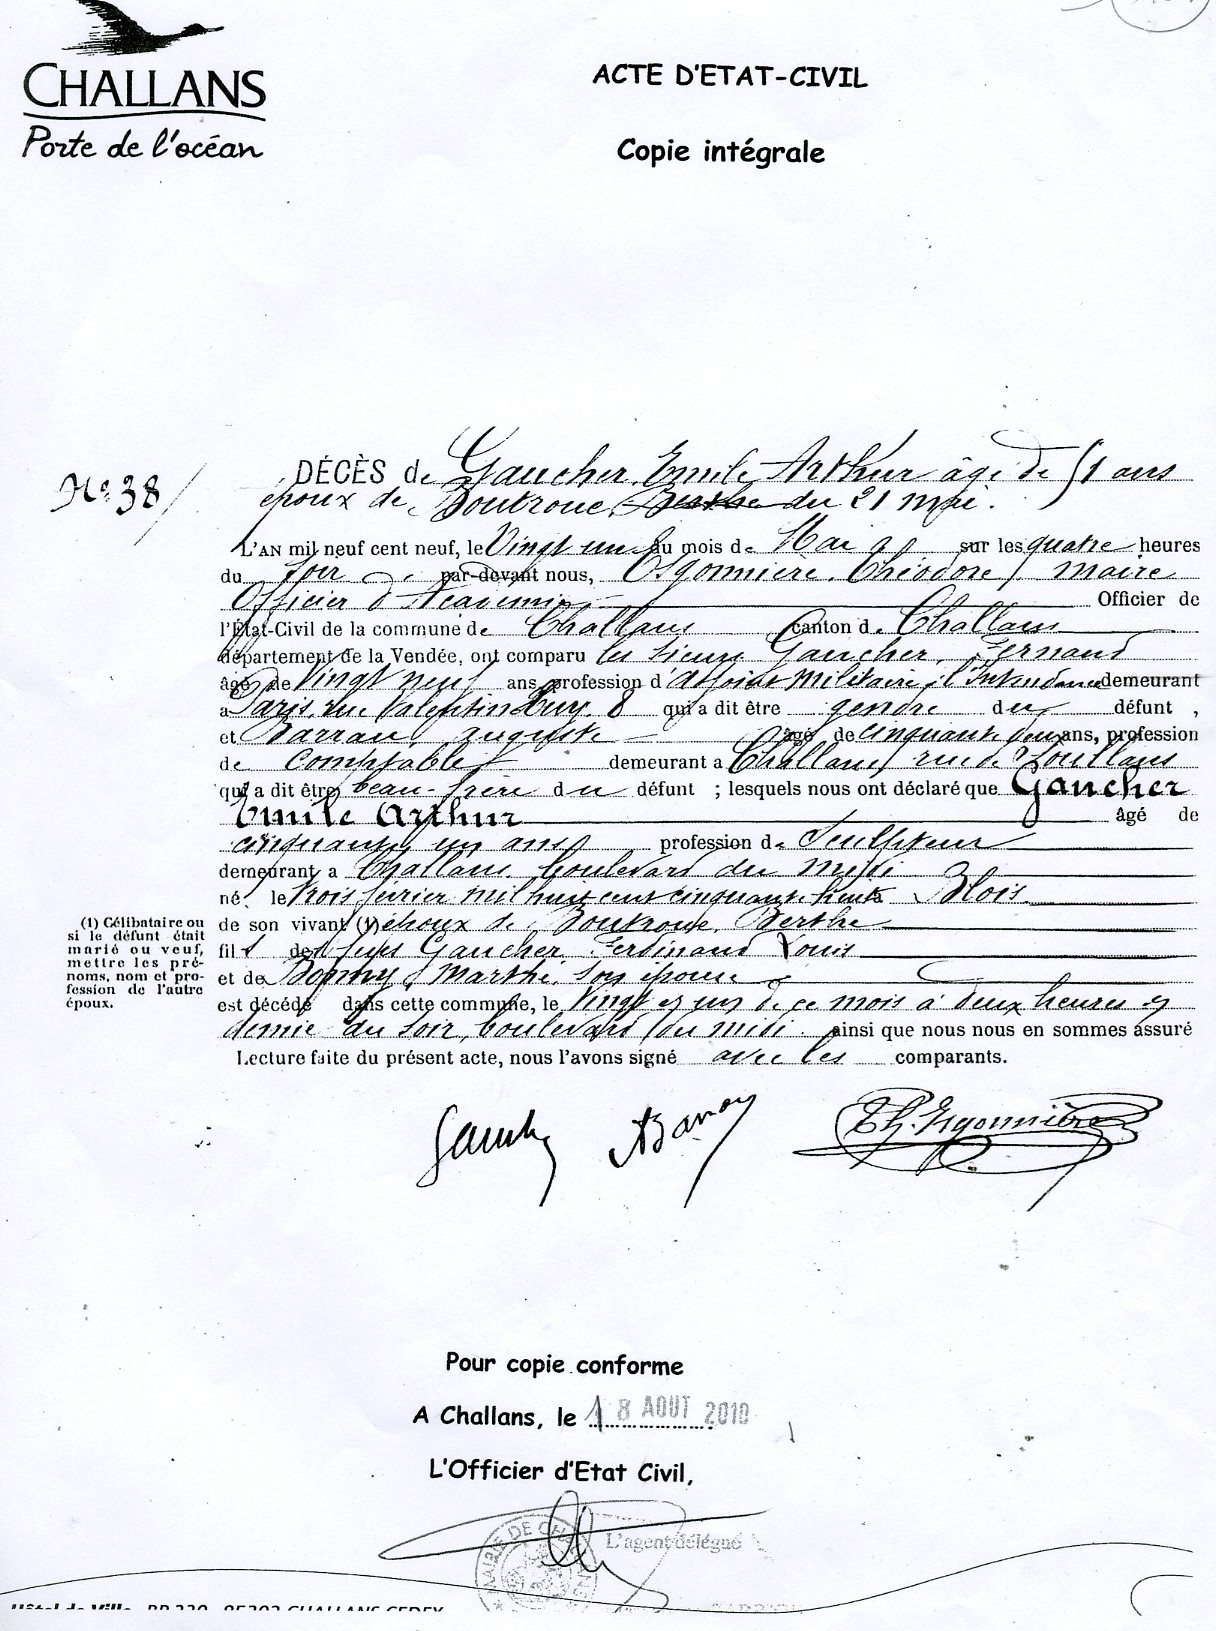 CHALLANS
Porte de l'océan
ACTE D'ETAT-CIVIL
Copie intégrale
No 38
DÉCÈS de Gaucher, Emile Arthur âgé de 51 ans
époux de Boutroue, Berthe du 21 mai.
L'AN mil neuf cent neuf, le Vingt un du mois de Mai sur les quatre heures
du soir par-devant nous, Esgonnière, Théodore, maire
Officier d'Académie Officier de
l'État-Civil de la commune de Challans canton de Challans
département de la Vendée, ont comparu les sieurs Gaucher, Fernand
âgé de Vingt neuf ans, profession d'adjoint militaire, l'Intendance demeurant
a Paris, rue Valentin Haüy 8 qui a dit être gendre du défunt,
et Barrau, Auguste âgé de cinquante deux ans, profession
de Comptable demeurant a Challans, rue de Soullans
qui a dit être beau-frère du défunt ; lesquels nous ont déclaré que Gaucher
Emile Arthur âgé de
cinquante un ans profession de Sculpteur
demeurant a Challans boulevard du midi
né le trois février mil huit cent cinquante huit à Blois
de son vivant (1) époux de Boutroue, Berthe
fils des feus Gaucher Ferdinand Louis
et de Marthe, son épouse
est décédé dans cette commune, le Vingt et un de ce mois à deux heures et
demie du soir, boulevard du midi ainsi que nous nous en sommes assuré
Lecture faite du présent acte, nous l'avons signé avec les comparants.
(1) Célibataire ou
si le défunt était
marié ou veuf,
mettre les pré-
noms, nom et pro-
fession de l'autre
époux.
Th. Esgonnière
Pour copie conforme
A Challans, le 18 AOUT 2010
L'Officier d'Etat Civil,
L'agent délégué
MAIRIE DE
Hôtel de Ville - BP 239 - 85302 CHALLANS CEDEX